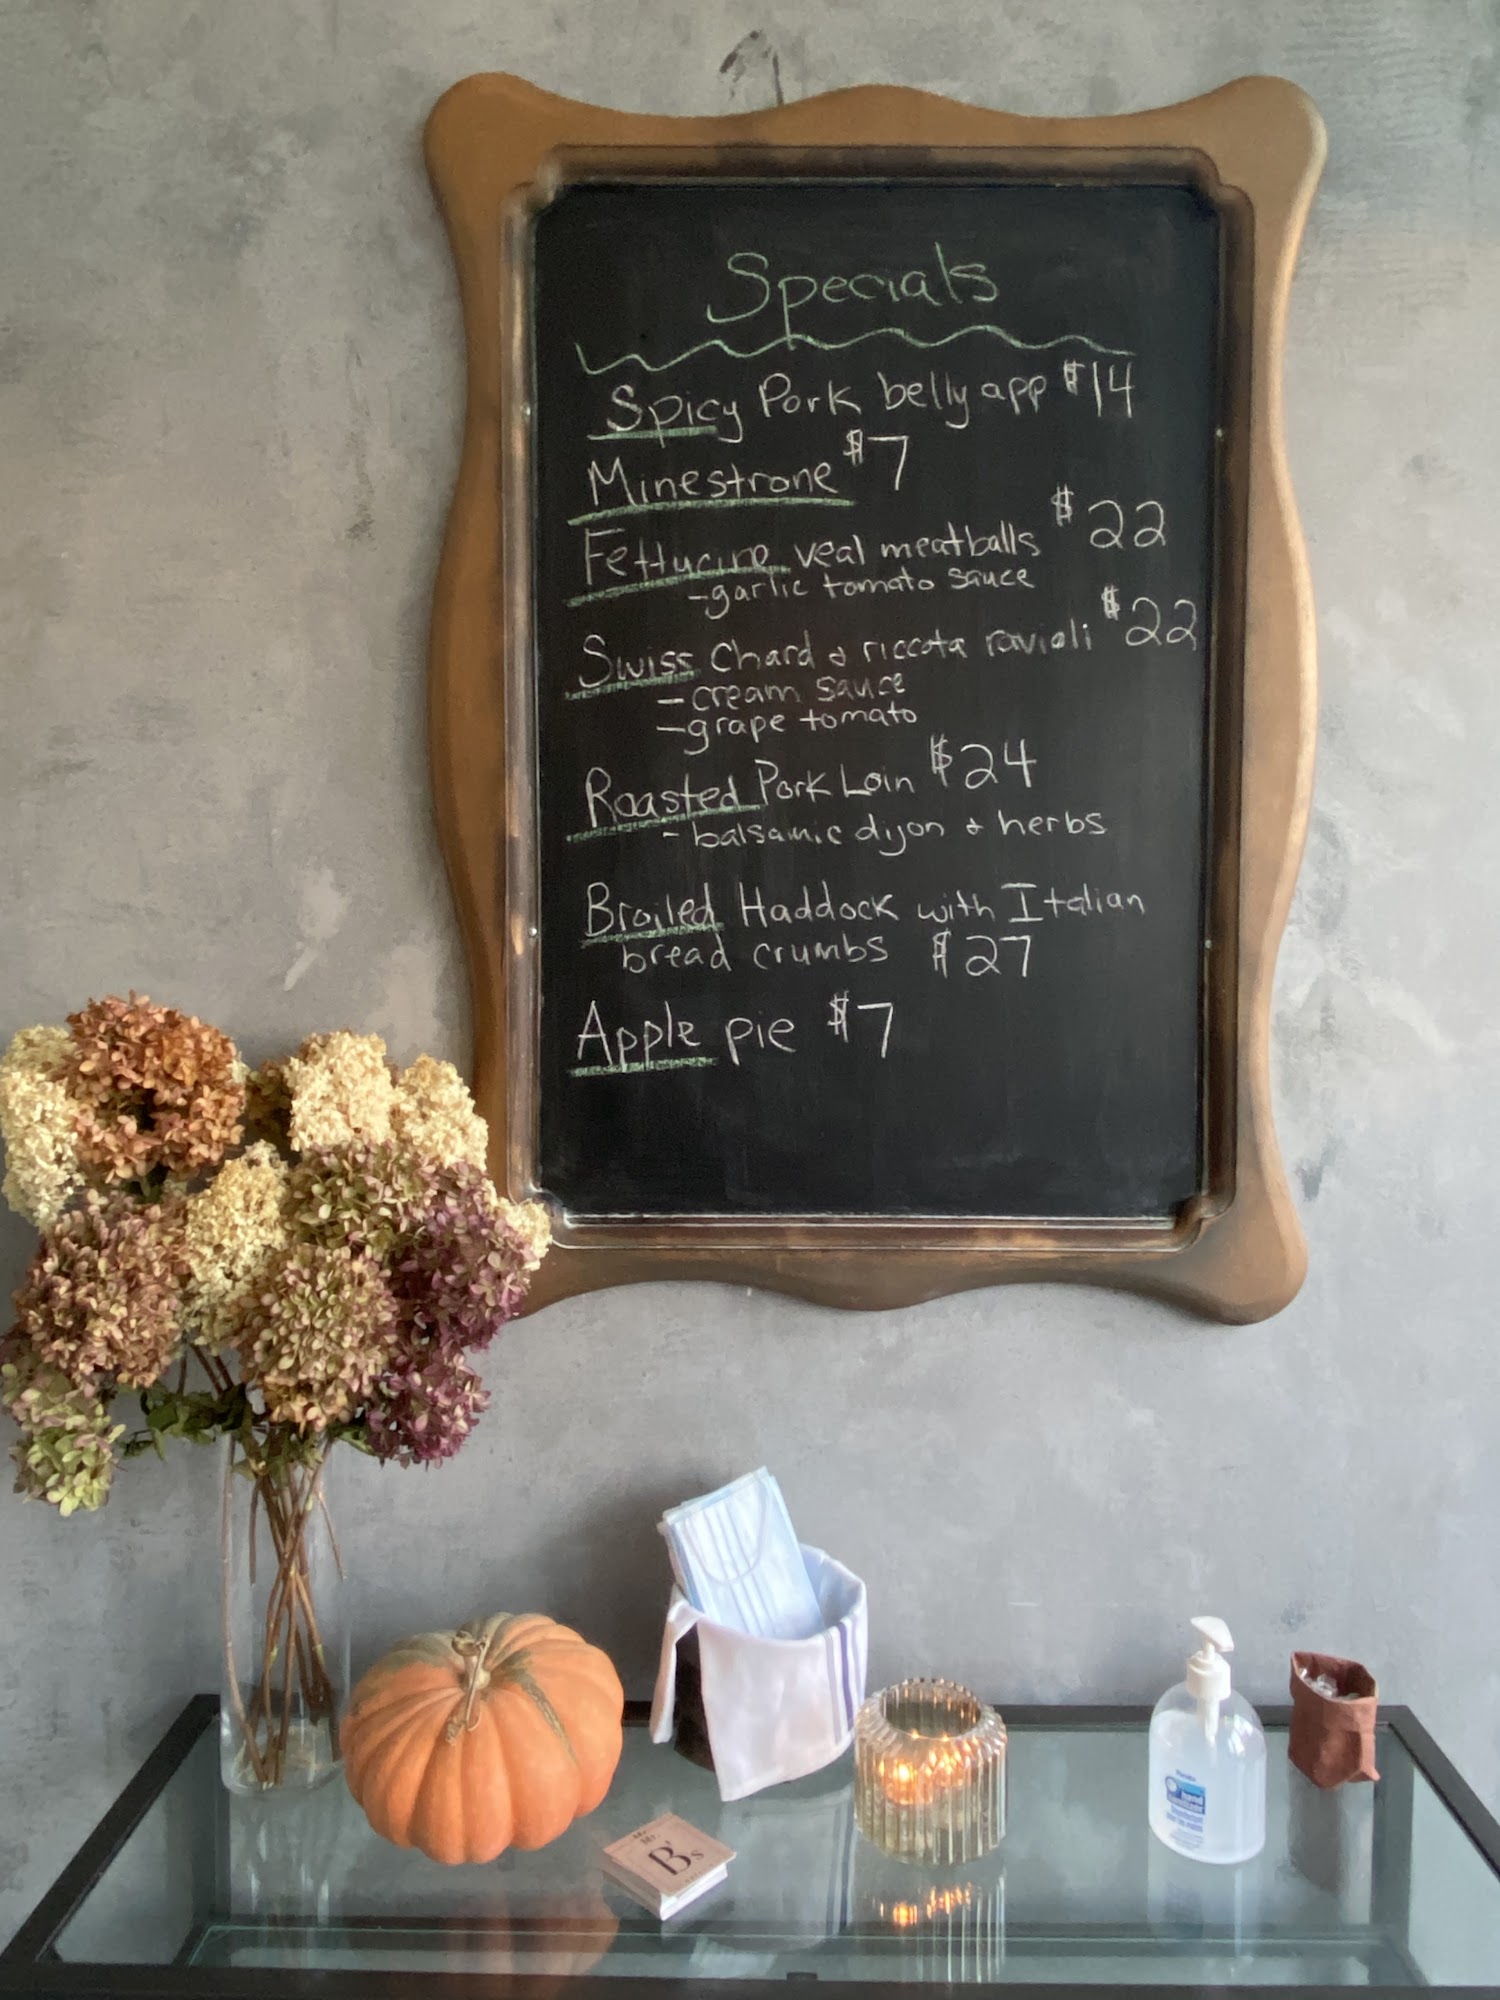 Specials
Spicy Pork belly app $14
Minestrone $7
Fettucine veal meatballs $22
-garlic tomato sauce
Swiss Chard & riccota ravioli $22
-cream sauce
-grape tomato
Roasted Pork Loin $24
- balsamic dijon & herbs
Broiled Haddock with Italian
bread crumbs $27
Apple pie $7
B's
hand